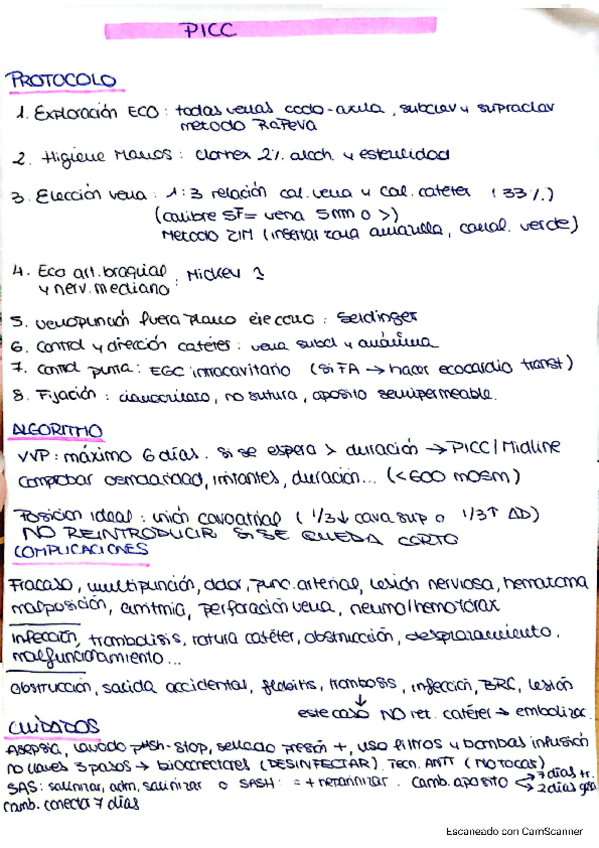 PICC
PROTOCOLO
1. Exploración ECO: todas venas codo-axila, subclav y supraclav
método RaPeVa
2. Higiene Manos: clorhex 2% alcoh. y esterilidad
3. Elección vena: 1:3 relación cal. vena y cal. catéter (33%)
(calibre 5F = vena 5mm o >)
Método ZIM (insertar zona amarilla, canal. verde)
4. Eco art. braquial
y nerv. mediano: Mickey
5. Venopunción fuera plano eje corto: Seldinger
6. Control y dirección catéter: vena subcl y anónima
7. Control punta: EGC intracavitario (si FA → hacer ecocardio transt)
8. Fijación: cianocrilato, no sutura, aposito semipermeable.
ALGORITMO
VVP: máximo 6 días. Si se espera > duración → PICC/Midline
Comprobar osmolaridad, irritantes, duración... (<600 mosm)
Posición ideal: unión cavoatrial (1/3↓ cava sup o 1/3↑ AD)
NO REINTRODUCIR SI SE QUEDA CORTO
COMPLICACIONES
Fracaso, multipunción, dolor, punc. arterial, lesión nerviosa, hematoma
malposición, arritmia, perforación vena, neumo/hemotórax
Infección, trombolisis, rotura catéter, obstrucción, desplazamiento,
malfuncionamiento...
Obstrucción, salida accidental, flebitis, trombosis, infección, BRC, lesión
este caso NO ret. catéter → embolizar.
CUIDADOS
Asepsia, lavado push-stop, sellado presión +, uso filtros y bombas infusión
no llaves 3 pasos → bioconectores (DESINFECTAR). Tecn. ANTT (NO TOCAR)
SAS: salinizar, adm, salinizar o SASH: = + heparinizar. Camb. aposito → 7 días tr.
→ 2 días gasa
Camb. conector 7 días
Escaneado con CamScanner